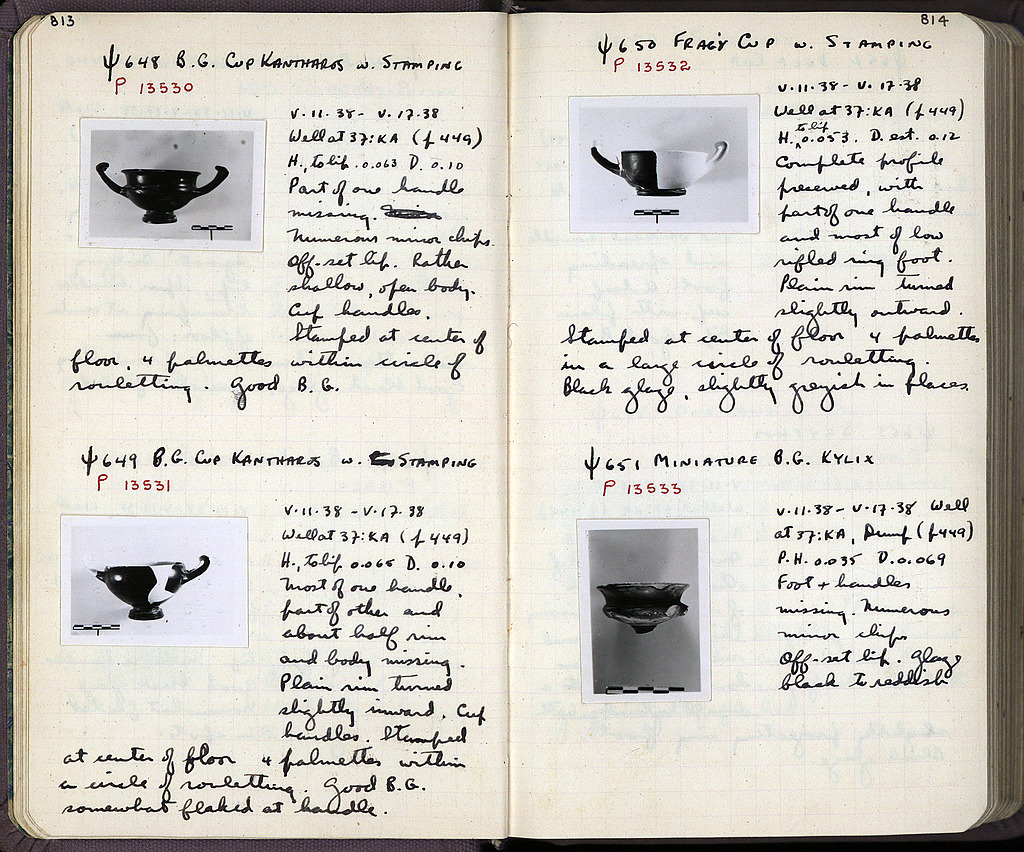 813
ψ648 B.G. Cup Kantharos w. Stamping
P 13530
V.11.38 - V.17.38
Well at 37:ΚΑ (p 449)
H., to lip 0.063 D. 0.10
Part of one handle
missing.
Numerous minor chips.
Off-set lip. Rather
shallow, open body.
Cup handles.
Stamped at center of
floor, 4 palmettes within circle of
rouletting. Good B.G.
ψ649 B.G. Cup Kantharos w. Stamping
P 13531
V.11.38 - V.17.38
Well at 37:ΚΑ (p 449)
H., to lip 0.065 D. 0.10
Most of one handle,
part of other and
about half rim
and body missing.
Plain rim turned
slightly inward. Cup
handles. Stamped
at center of floor 4 palmettes within
a circle of rouletting. Good B.G.
somewhat flaked at handle.
814
ψ650 Frag'y Cup w. Stamping
P 13532
V.11.38 - V.17.38
Well at 37:ΚΑ (p 449)
H. to lip 0.053. D. est. 0.12
Complete profile
preserved, with
part of one handle
and most of low
rifled ring foot.
Plain rim turned
slightly outward.
Stamped at center of floor 4 palmettes
in a large circle of rouletting.
Black glaze, slightly greyish in places.
ψ651 Miniature B.G. Kylix
P 13533
V.11.38 - V.17.38 Well
at 37:ΚΑ, Dump (p 449)
P.H. 0.035 D. 0.069
Foot + handles
missing. Numerous
minor chips
Off-set lip. Glaze
black to reddish